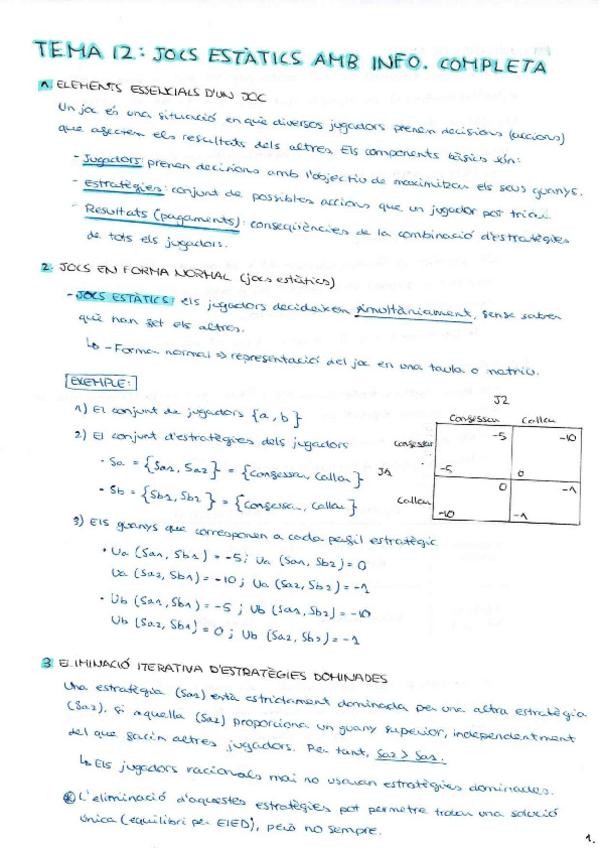 TEMA 12: JOCS ESTÀTICS AMB INFO. COMPLETA
1. ELEMENTS ESSENCIALS D'UN JOC
Un joc és una situació en què diversos jugadors prenen decisions (accions)
que afecten els resultats dels altres. Els components bàsics són:
- Jugadors: prenen decisions amb l'objectiu de maximitzar els seus guanys.
- Estratègies: conjunt de possibles accions que un jugador pot triar.
- Resultats (pagaments): conseqüències de la combinació d'estratègies
de tots els jugadors.
2. JOCS EN FORMA NORMAL (jocs estàtics)
- JOCS ESTÀTICS: els jugadors decideixen simultàniament, sense saber
què han fet els altres.
↳ - Forma normal ⇒ representació del joc en una taula o matriu.
EXEMPLE:
1) El conjunt de jugadors {a, b}
2) El conjunt d'estratègies dels jugadors
· Sa = {Sa1, Sa2} = {confessar, callar}
· Sb = {Sb1, Sb2} = {confessar, callar}
J2
Confessar Callar
confessar -5 -10
J1 -5 0
Callar 0 -1
-10 -1
3) Els guanys que corresponen a cada perfil estratègic
· Ua (Sa1, Sb1) = -5; Ua (Sa1, Sb2) = 0
Ua (Sa2, Sb1) = -10; Ua (Sa2, Sb2) = -1
· Ub (Sa1, Sb1) = -5; Ub (Sa1, Sb2) = -10
Ub (Sa2, Sb1) = 0; Ub (Sa2, Sb2) = -1
3. ELIMINACIÓ ITERATIVA D'ESTRATÈGIES DOMINADES
Una estratègia (Sa1) està estrictament dominada per una altra estratègia
(Sa2), si aquella (Sa2) proporciona un guany superior, independentment
del que facin altres jugadors. Per tant, Sa2 > Sa1.
↳ Els jugadors racionals mai no usaran estratègies dominades.
L'eliminació d'aquestes estratègies pot permetre trobar una solució
única (equilibri per EIED), però no sempre.
1.